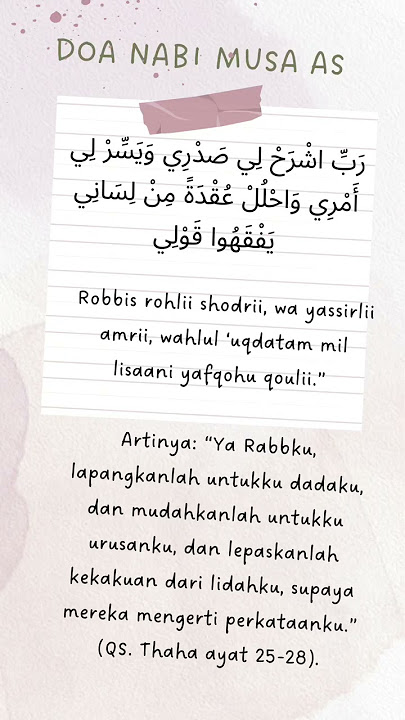 DOA NABI MUSA AS
رَبِّ اشْرَحْ لِي صَدْرِي وَيَسِّرْ لِي
أَمْرِي وَاحْلُلْ عُقْدَةً مِنْ لِسَانِي
يَفْقَهُوا قَوْلِي
Robbis rohlii shodrii, wa yassirlii
amrii, wahlul ‘uqdatam mil
lisaani yafqohu qoulii.”
Artinya: “Ya Rabbku,
lapangkanlah untukku dadaku,
dan mudahkanlah untukku
urusanku, dan lepaskanlah
kekakuan dari lidahku, supaya
mereka mengerti perkataanku.”
(QS. Thaha ayat 25-28).